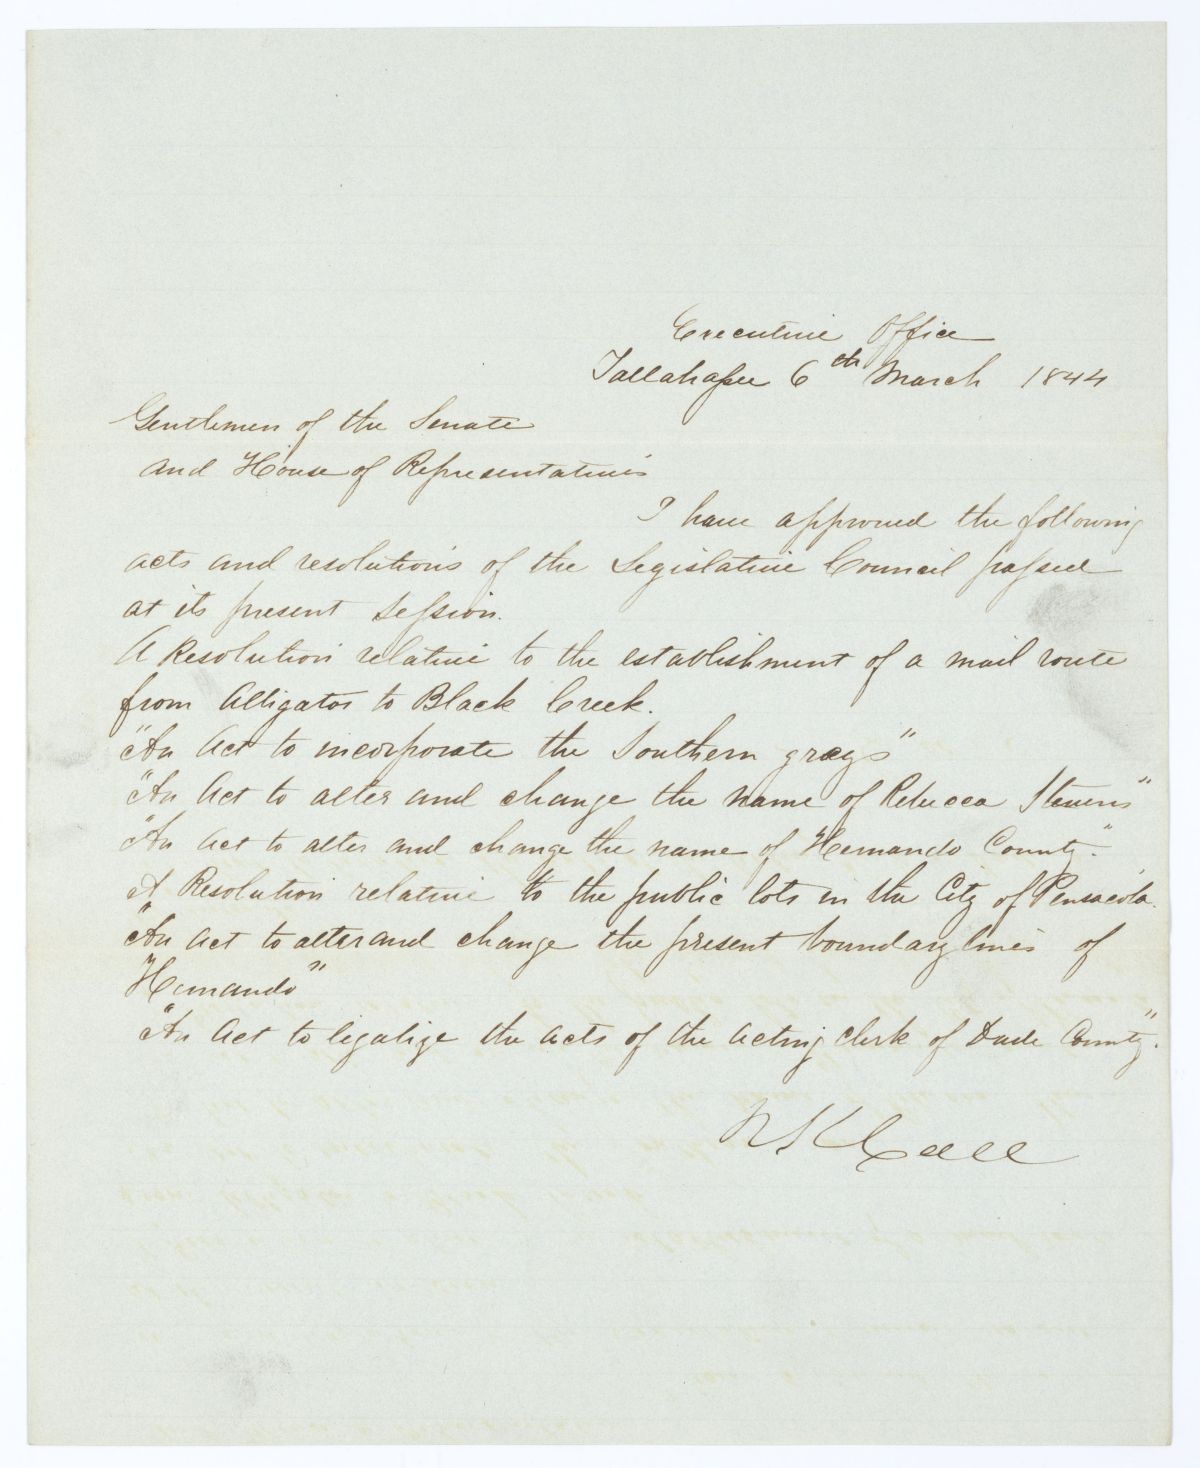 Executive Office
Tallahassee 6th March 1844
Gentlemen of the Senate
and House of Representatives
I have approved the following
acts and resolutions of the Legislative Council passed
at its present session.
A Resolution relative to the establishment of a mail route
from Alligator to Black Creek.
"An Act to incorporate the Southern grays"
"An Act to alter and change the name of Rebecca Stevens"
"An Act to alter and change the name of Hernando County."
A Resolution relative to the public lots in the City of Pensacola.
"An Act to alter and change the present boundary lines of
Hernando"
"An Act to legalize the acts of the acting Clerk of Dade County".
R K Call